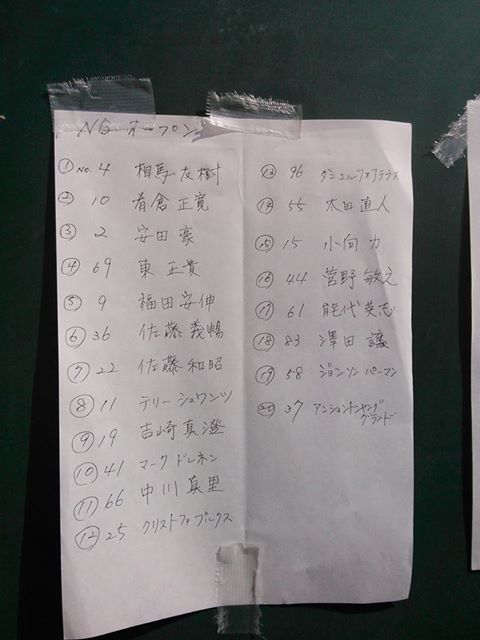 NS オープン
① No. 4 相馬友樹
② 10 肴倉正寛
③ 2 安田豪
④ 69 東正貴
⑤ 9 福田安伸
⑥ 36 佐藤義暢
⑦ 22 佐藤和昭
⑧ 11 テリー シュワンツ
⑨ 19 吉崎真澄
⑩ 41 マーク ドレネン
⑪ 66 中川真里
⑫ 25 クリストファ ブルックス
⑬ 96 ダニエル
⑭ 55 太田直人
⑮ 15 小向力
⑯ 44 菅野敏之
⑰ 61 能代英志
⑱ 83 澤田譲
⑲ 58 ジョンソン パーマン
⑳ 37
グランド